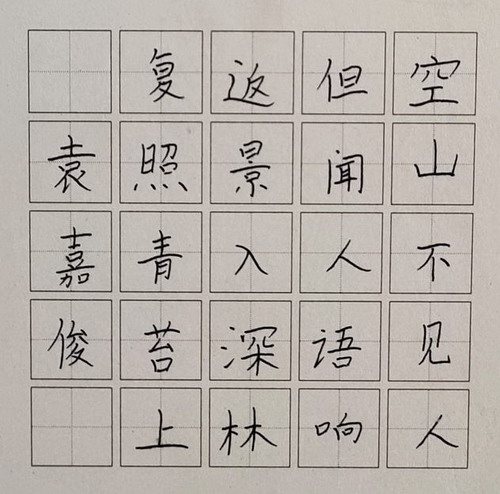 空山不见人
但闻人语响
返景入深林
复照青苔上
袁嘉俊